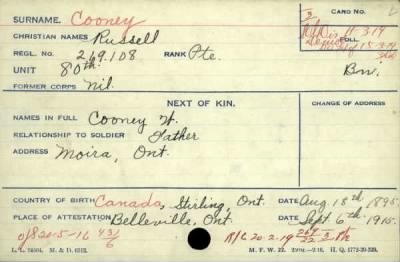 SURNAME. Cooney
CARD NO.
CHRISTIAN NAMES Russell
REGL. NO. 219.108 RANK Pte.
UNIT 80th.
FORMER CORPS Nil.
Bn.
NEXT OF KIN.
CHANGE OF ADDRESS
NAMES IN FULL Cooney W.
RELATIONSHIP TO SOLDIER Father
ADDRESS Moira, Ont.
COUNTRY OF BIRTH Canada, Stirling, Ont. DATE Aug. 18th, 1895
PLACE OF ATTESTATION Belleville, Ont. DATE Sept. 6th, 1915.
O/S 20-5-16 43/6 R/C 20-2-19
M. F. W. 22